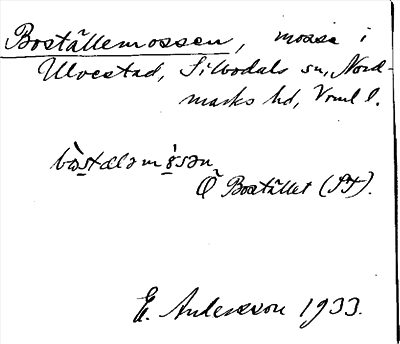 Boställemossen, mosse i
Ulvestad, Silbodals sn, Nord-
marks hd, Vrml l.
bo̱stæləmo̱sən
Ö Bostället (PF).
E. Andersson 1933.